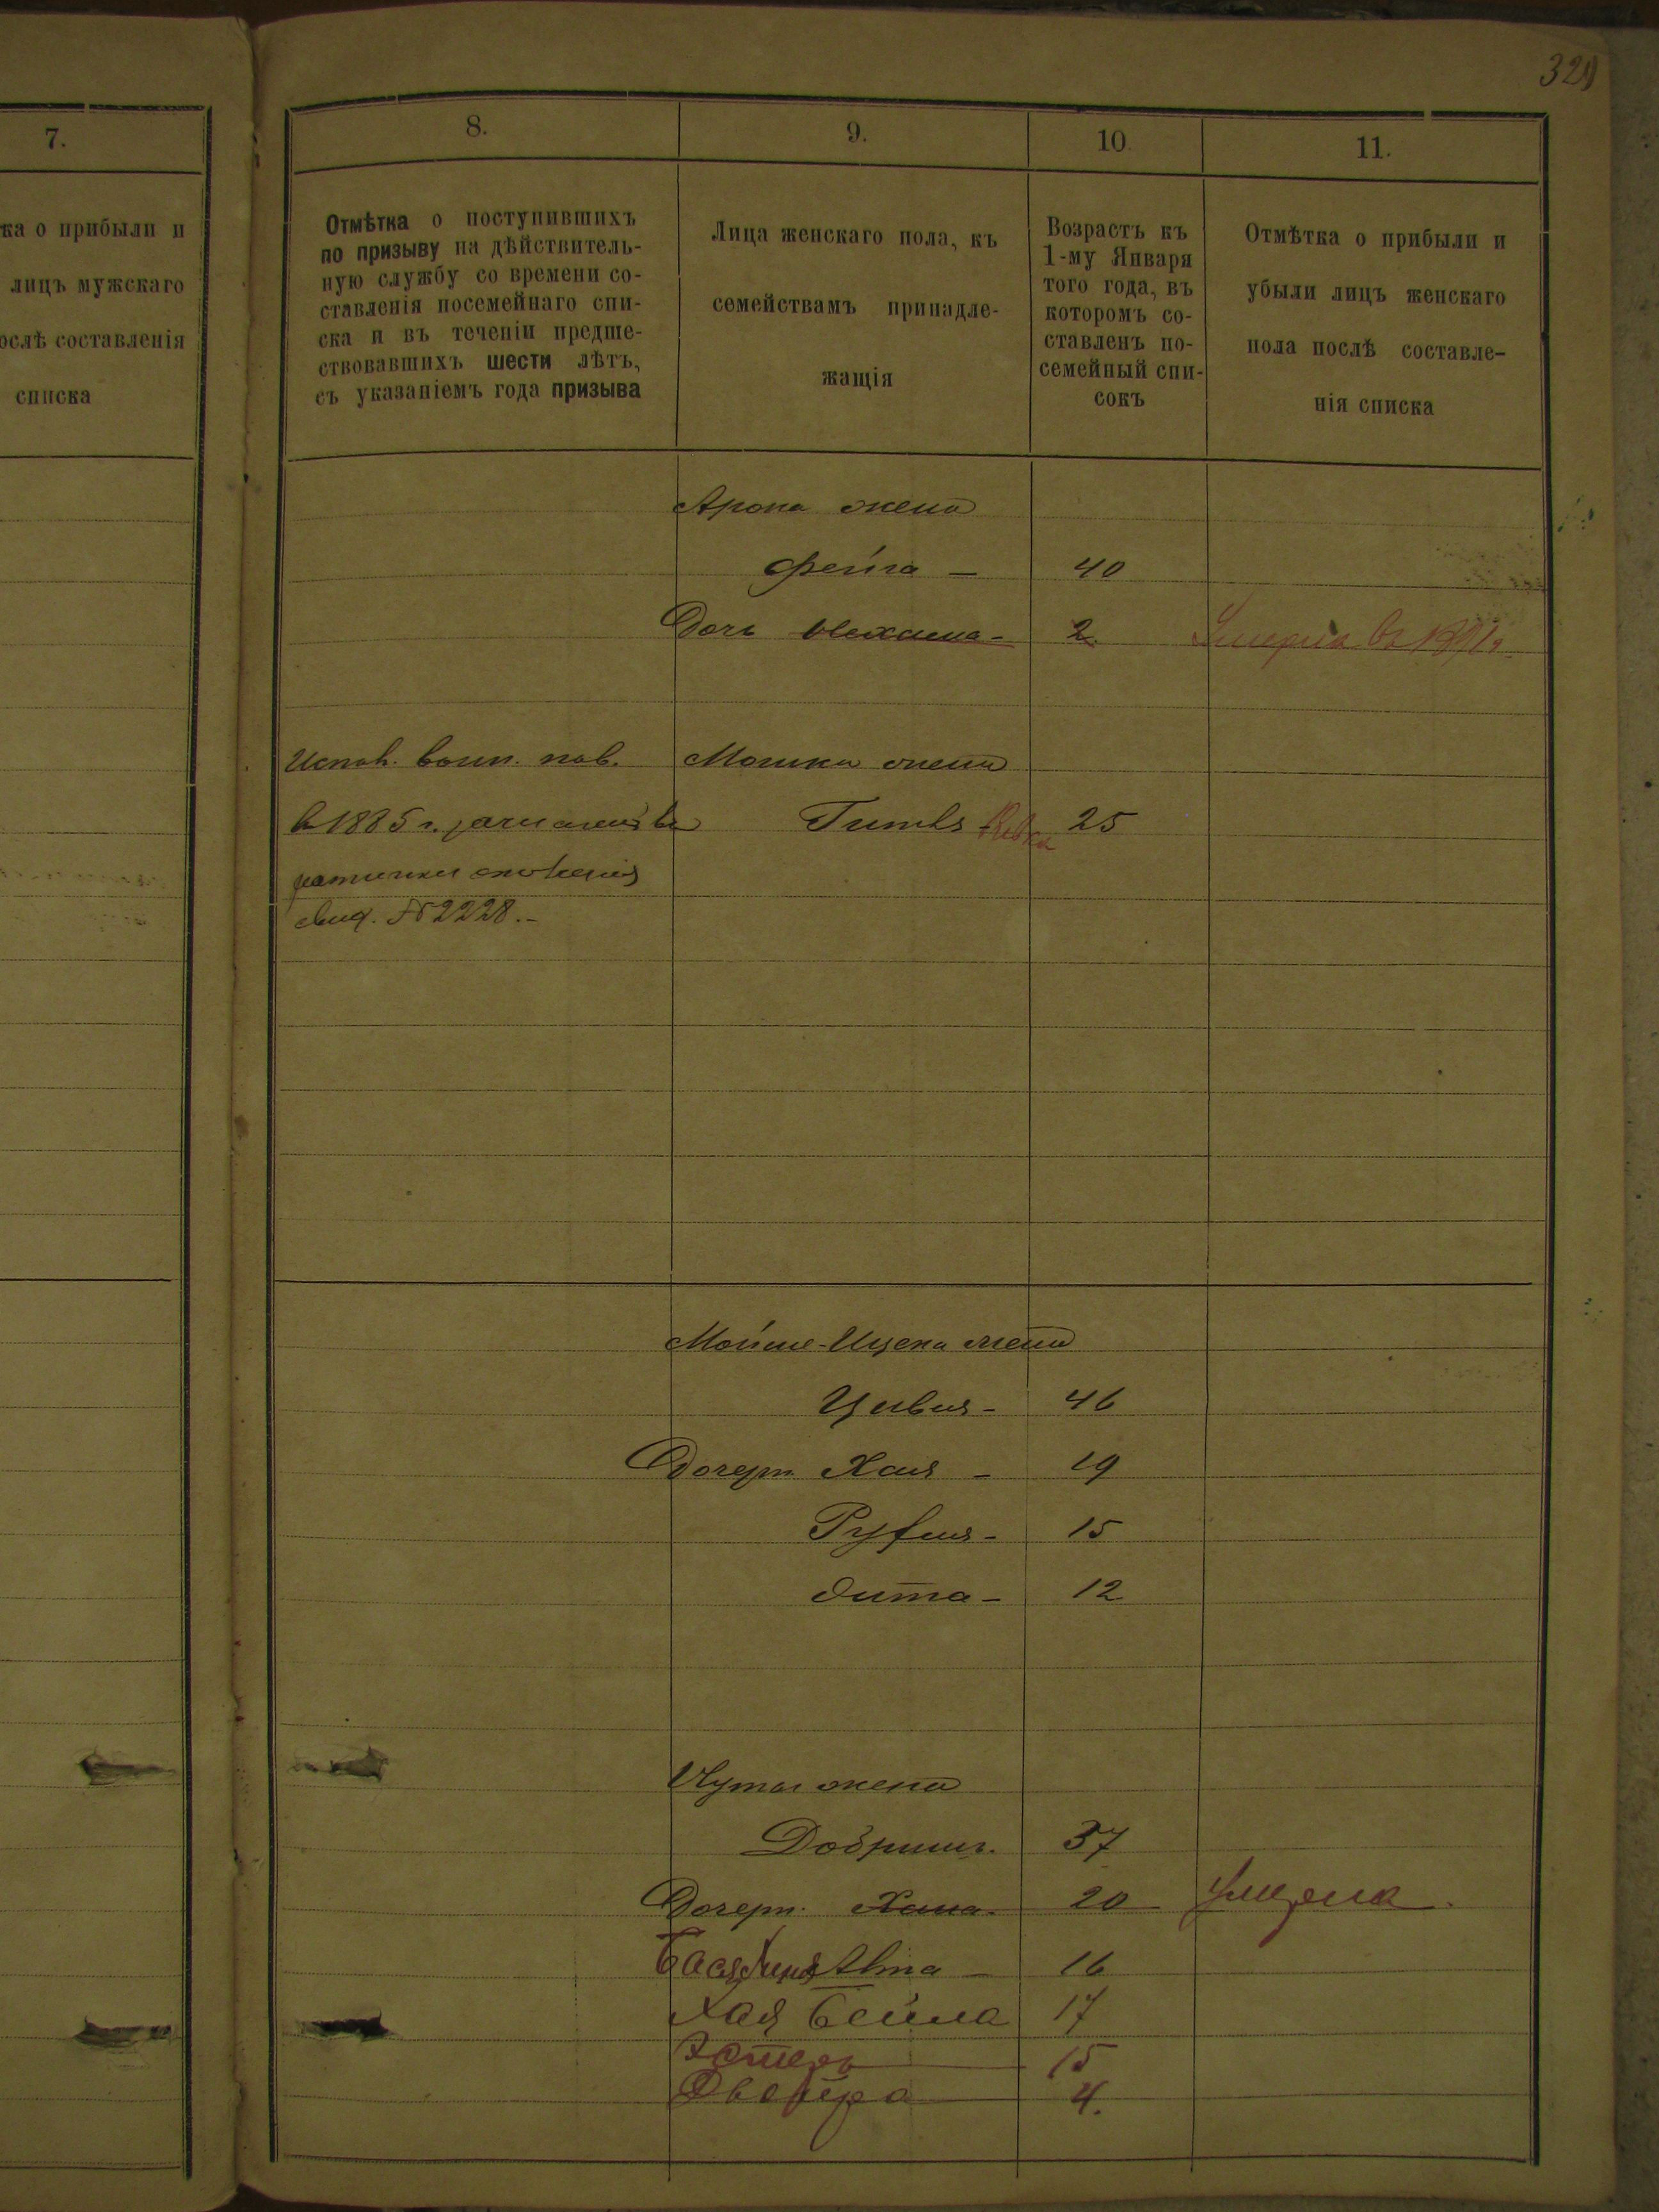 329
7.
ка о прибыли и
лицъ мужскаго
ослѣ составленія
списка
8.
Отмѣтка о поступившихъ
по призыву на дѣйствитель-
ную службу со времени со-
ставленія посемейнаго спи-
ска и въ теченіи предше-
ствовавшихъ шести лѣтъ,
съ указаніемъ года призыва
9.
Лица женскаго пола, къ
семействамъ принадле-
жащія
10.
Возрастъ къ
1-му Января
того года, въ
которомъ со-
ставленъ по-
семейный спи-
сокъ
11.
Отмѣтка о прибыли и
убыли лицъ женскаго
пола послѣ составле-
нія списка
Арона жена
Фейга - 40
Дочь 2 Умерла въ
Испол. воин. пов. Мошки жена
в 1885 г. зачислен въ Ривка 25
ратники ополченія
свид. № 2228.-
Мойше-Ицека жена
Цивья - 46
Дочери Хая - 19
15
12
жена
Добрыш. 37
Дочери Хана 20 Умерла.
Бася 16
Хая Бейла 17
Эстеръ 15
Двейра 4.